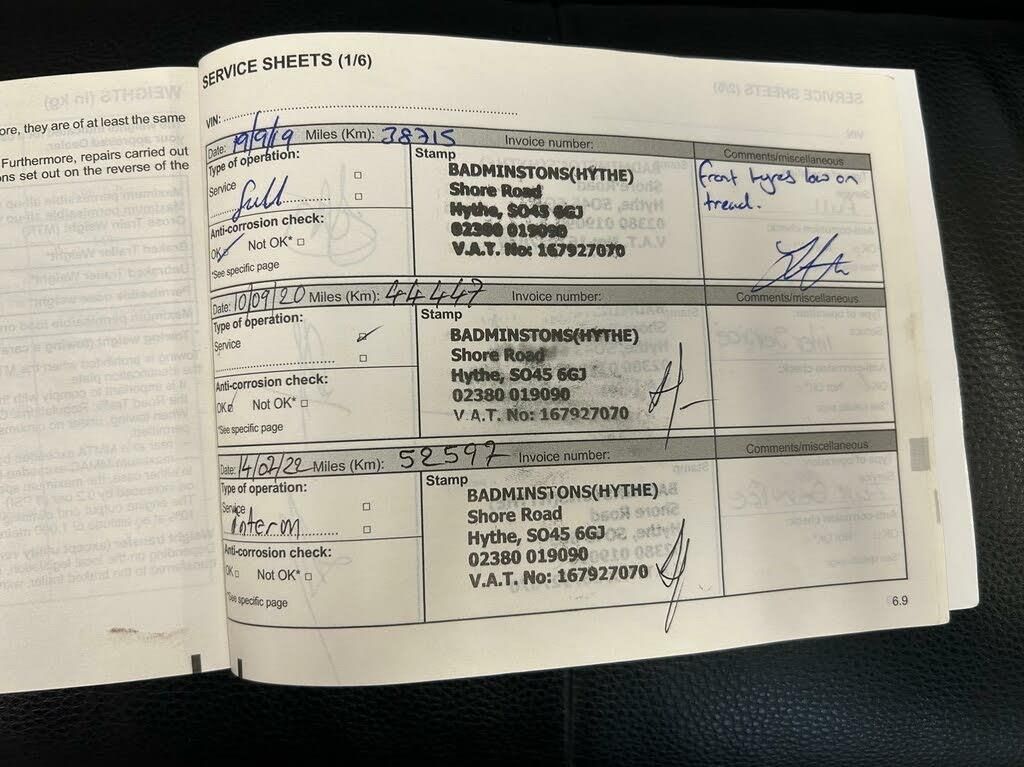 ore, they are of at least the same
Furthermore, repairs carried out
ns set out on the reverse of the
SERVICE SHEETS (1/6)
VIN:
Date: 19/9/19 Miles (Km): 38715 Invoice number:
Comments/miscellaneous
Type of operation:
Service
full
Anti-corrosion check:
OK Not OK*
*See specific page
Stamp
BADMINSTONS(HYTHE)
Shore Road
Hythe, SO45 6GJ
02380 019090
V.A.T. No: 167927070
front tyres low on
tread.
Date: 10/09/20 Miles (Km): 44447 Invoice number:
Comments/miscellaneous
Type of operation:
Service
Anti-corrosion check:
OK Not OK*
*See specific page
Stamp
BADMINSTONS(HYTHE)
Shore Road
Hythe, SO45 6GJ
02380 019090
V.A.T. No: 167927070
Date: 14/02/22 Miles (Km): 52597 Invoice number:
Comments/miscellaneous
Type of operation:
Service
interm
Anti-corrosion check:
OK Not OK*
*See specific page
Stamp
BADMINSTONS(HYTHE)
Shore Road
Hythe, SO45 6GJ
02380 019090
V.A.T. No: 167927070
6.9